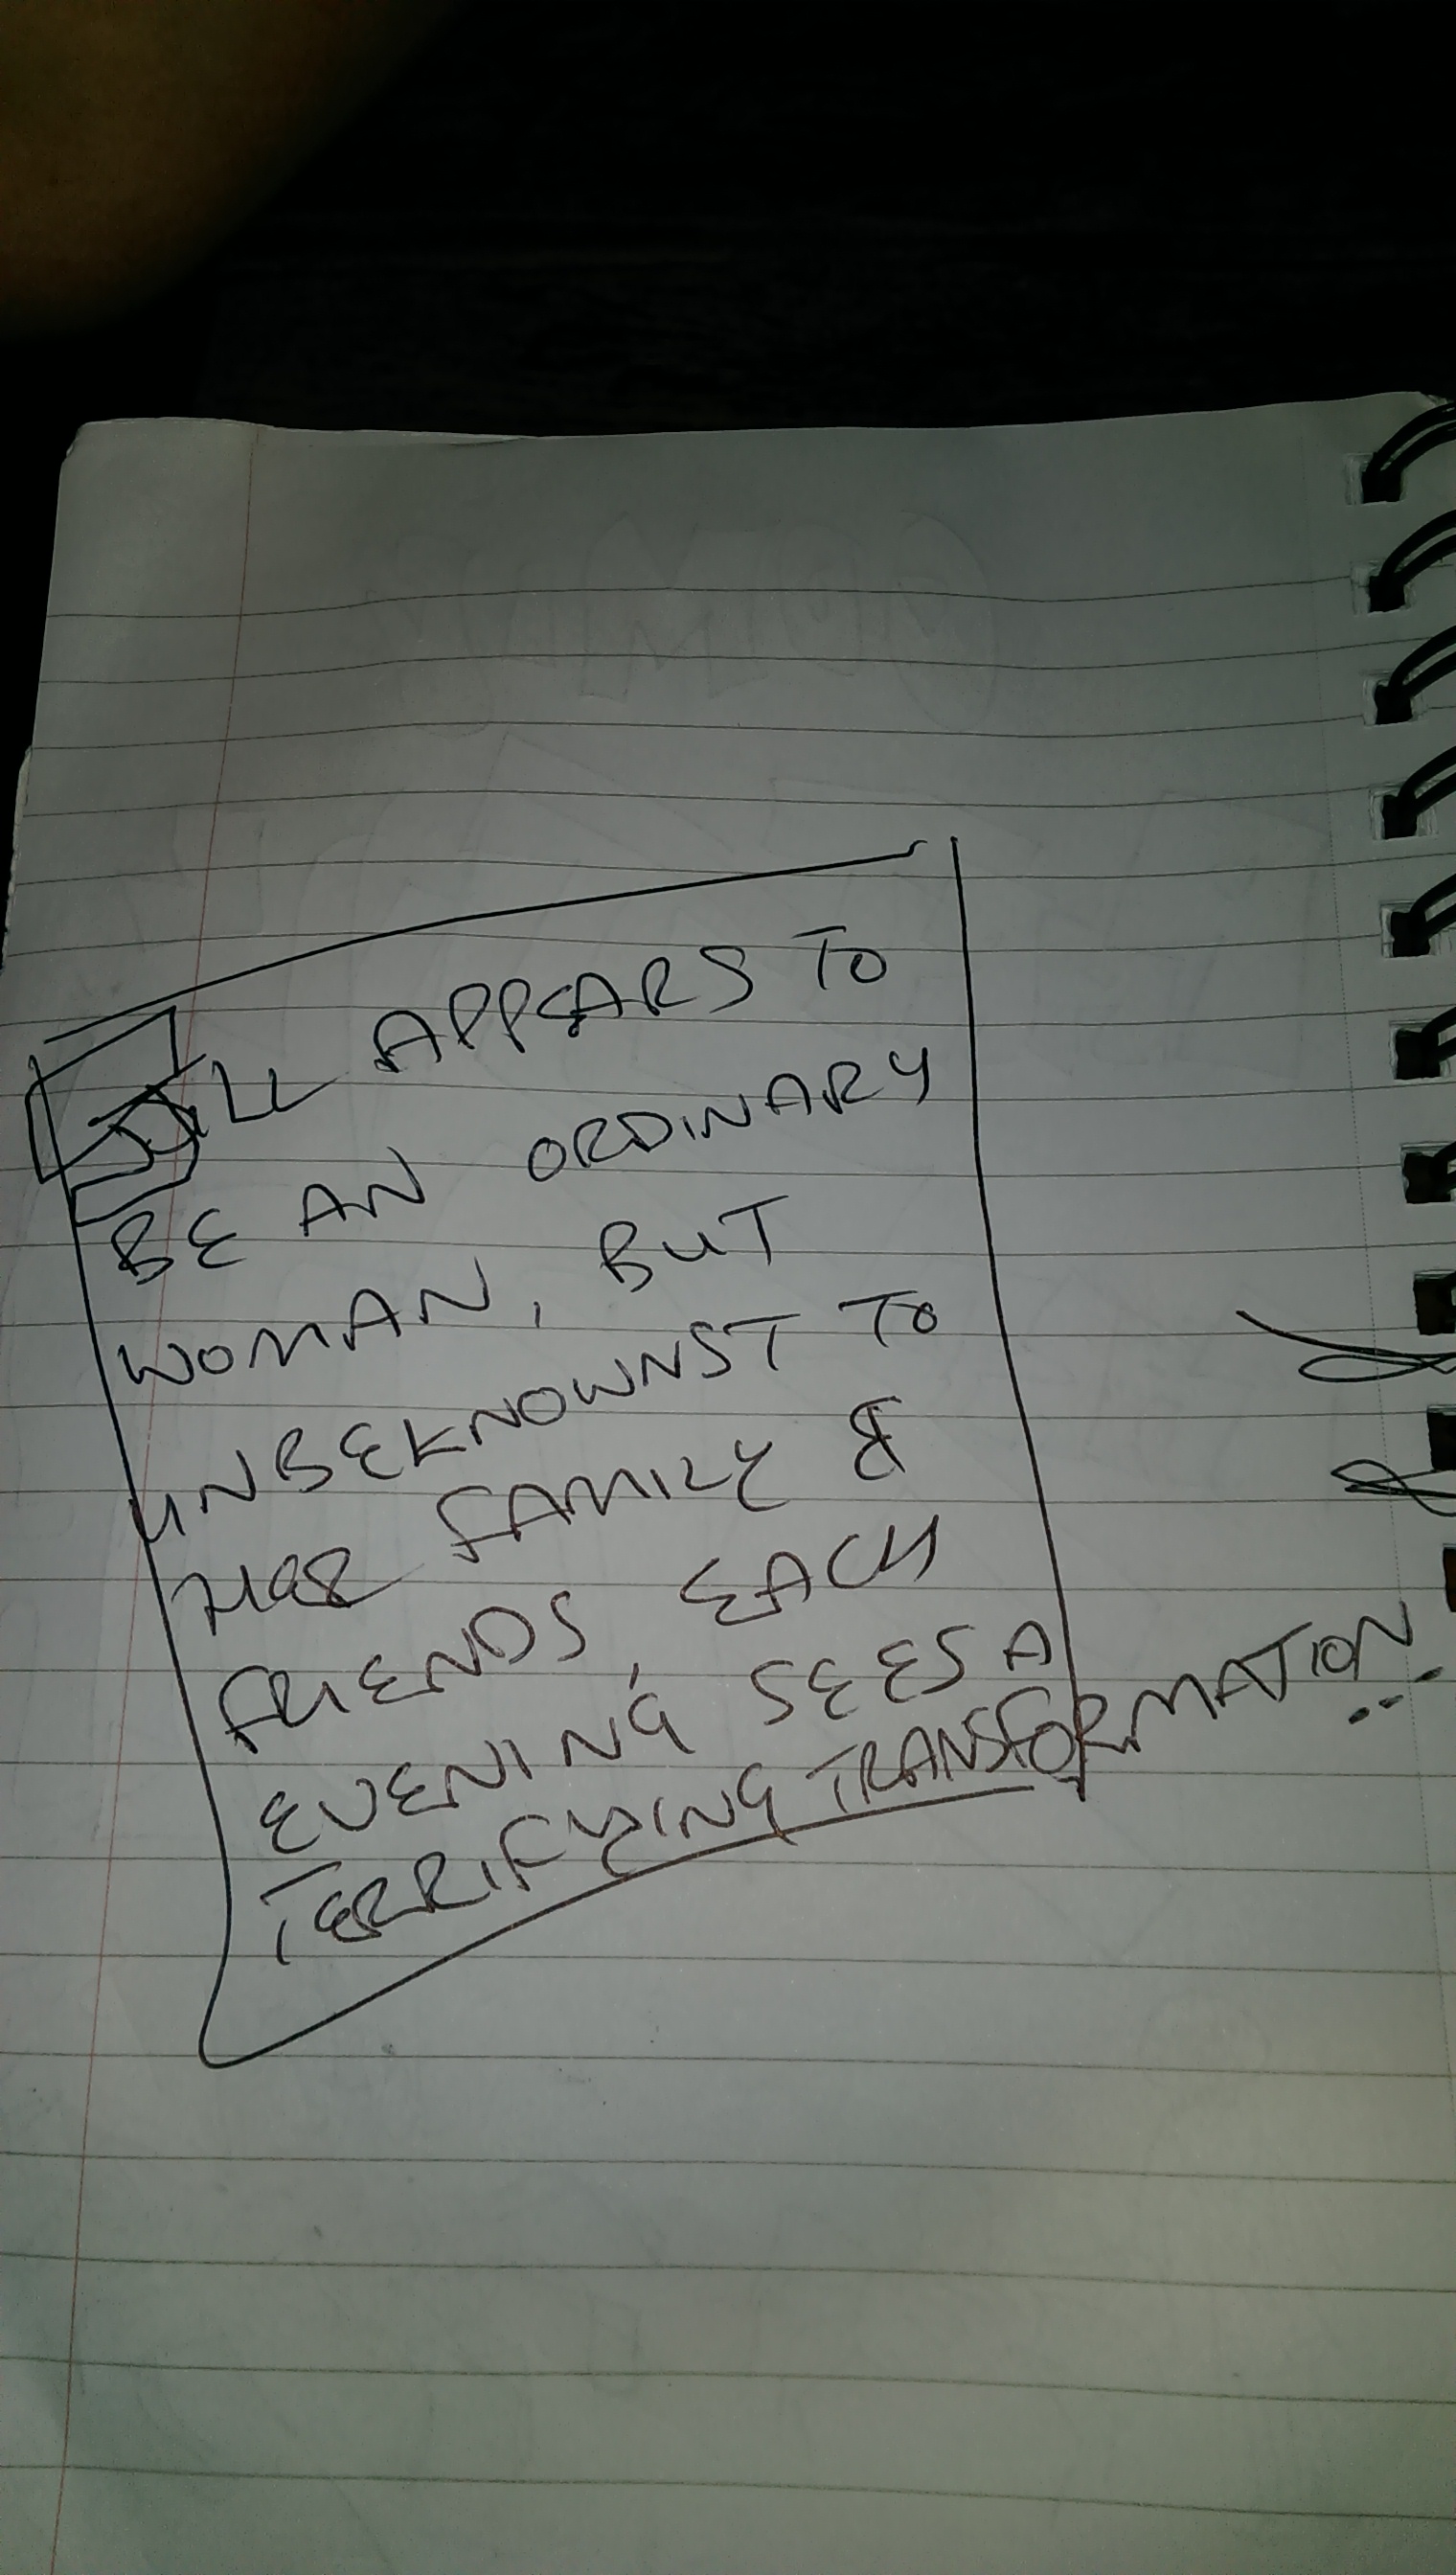 JILL APPEARS TO
BE AN ORDINARY
WOMAN, BUT
UNBEKNOWNST TO
HER FAMILY &
FRIENDS, EACH
EVENING SEES A
TERRIFYING TRANSFORMATION...